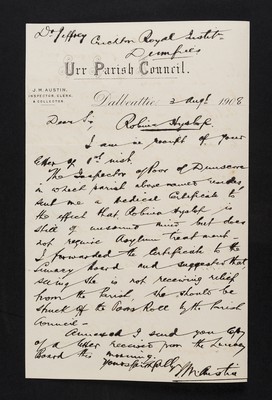 Dr Jeffrey Crichton Royal Instit-
Dumfries
Urr Parish Council.
J. H. AUSTIN,
INSPECTOR, CLERK,
& COLLECTOR.
Dalbeattie, 3 Augt 1908
Dear Sir,
Robina Hyslop
I am in receipt of your
letter of 1st inst.
The Inspector of Poor of Dunscore
in which parish above named resides,
sent me a Medical Certificate to
the effect that Robina Hyslop is
still of unsound mind but does
not require Asylum treatment -
I forwarded the Certificate to the
Lunacy Board and suggested that,
seeing she is not receiving relief
from the Parish, she should be
struck off the Poors Roll by the Parish
Council -
Annexed I send you copy
of a letter received from the Lunacy
Board this morning.
Yours faithfully
J H Austin